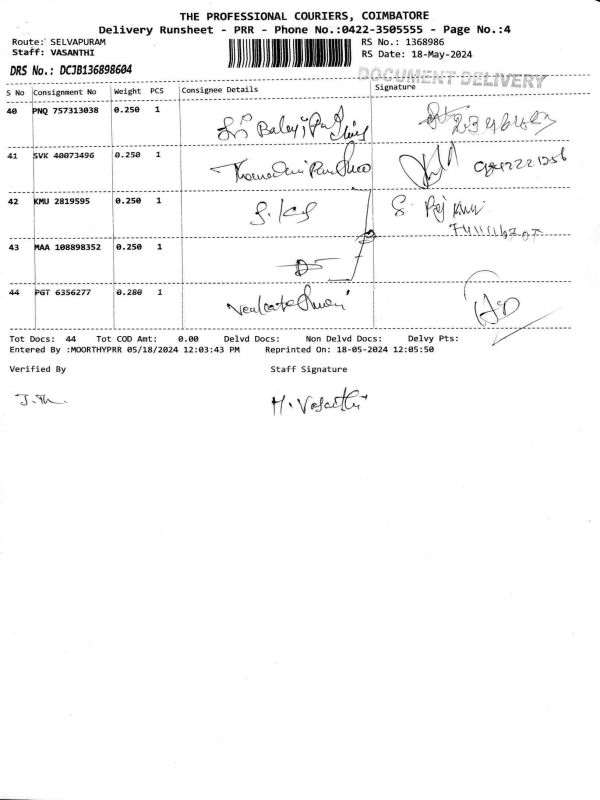 THE PROFESSIONAL COURIERS, COIMBATORE
Delivery Runsheet - PRR - Phone No.:0422-3505555 - Page No.:4
Route: SELVAPURAM RS No.: 1368986
Staff: VASANTHI RS Date: 18-May-2024
DRS No.: DCJB136898604 DOCUMENT DELIVERY
S No Consignment No Weight PCS Consignee Details Signature
40 PNQ 757313038 0.250 1
41 SVK 40073496 0.250 1
42 KMU 2819595 0.250 1
43 MAA 108898352 0.250 1
44 PGT 6356277 0.280 1
Tot Docs: 44 Tot COD Amt: 0.00 Delvd Docs: Non Delvd Docs: Delvy Pts:
Entered By :MOORTHYPRR 05/18/2024 12:03:43 PM Reprinted On: 18-05-2024 12:05:50
Verified By Staff Signature
M. Vasanthi